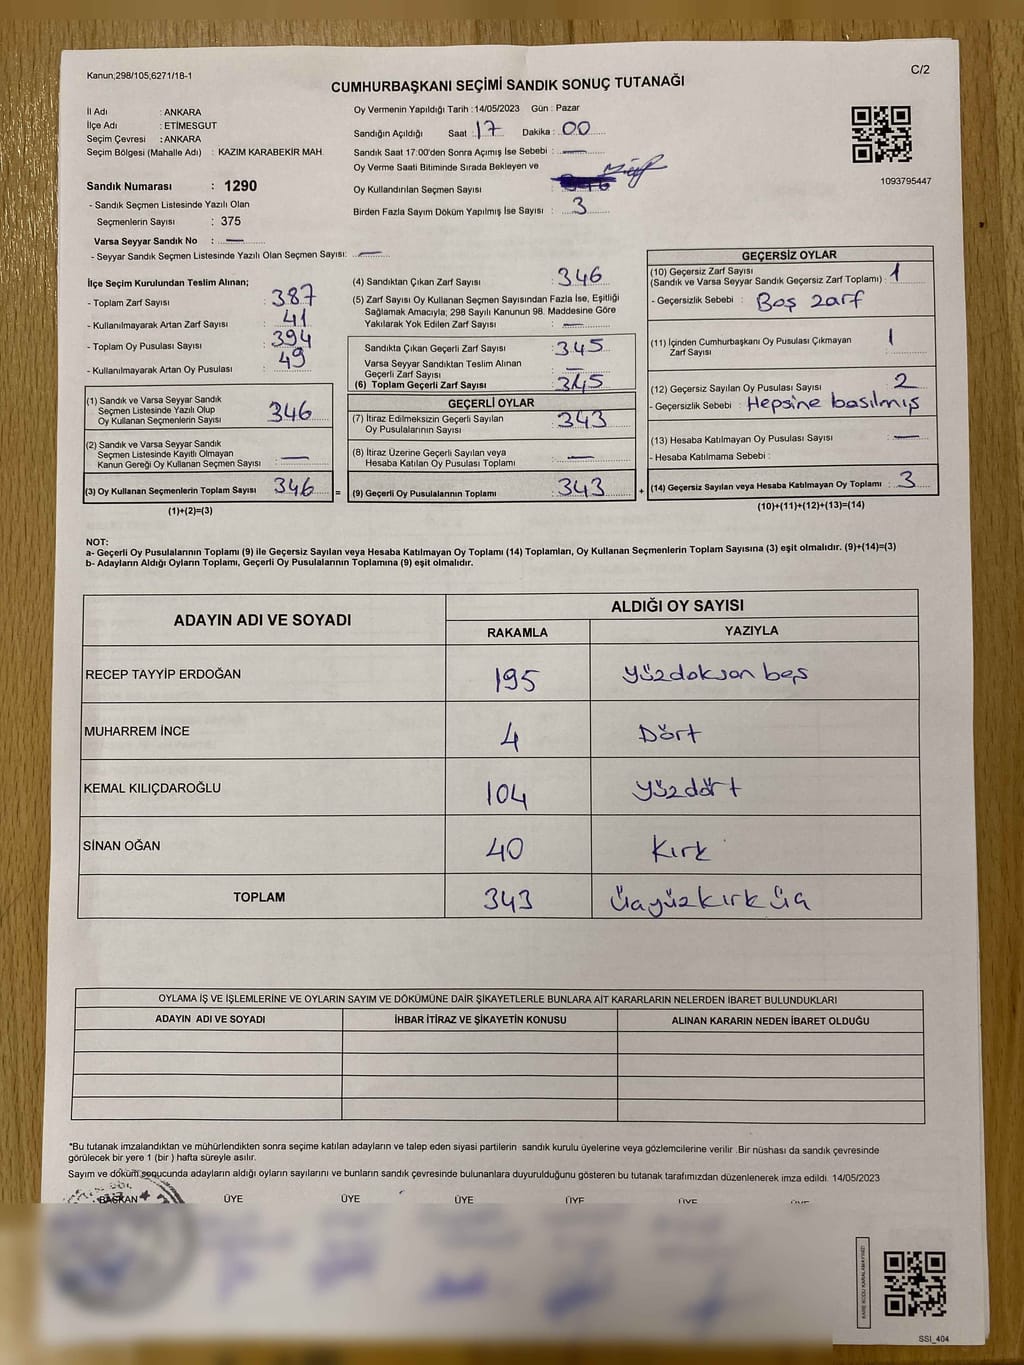 Kanun;298/105,6271/18-1
C/2
CUMHURBAŞKANI SEÇİMİ SANDIK SONUÇ TUTANAĞI
İl Adı : ANKARA
İlçe Adı : ETİMESGUT
Seçim Çevresi : ANKARA
Seçim Bölgesi (Mahalle Adı) : KAZIM KARABEKİR MAH.
Sandık Numarası : 1290
- Sandık Seçmen Listesinde Yazılı Olan
Seçmenlerin Sayısı : 375
Varsa Seyyar Sandık No : —
- Seyyar Sandık Seçmen Listesinde Yazılı Olan Seçmen Sayısı: —
Oy Vermenin Yapıldığı Tarih : 14/05/2023 Gün : Pazar
Sandığın Açıldığı Saat : 17 Dakika : 00
Sandık Saat 17:00'den Sonra Açımış İse Sebebi : —
Oy Verme Saati Bitiminde Sırada Bekleyen ve
Oy Kullandırılan Seçmen Sayısı :
Birden Fazla Sayım Döküm Yapılmış İse Sayısı : 3
1093795447
İlçe Seçim Kurulundan Teslim Alınan;
- Toplam Zarf Sayısı : 387
- Kullanılmayarak Artan Zarf Sayısı : 41
- Toplam Oy Pusulası Sayısı : 394
- Kullanılmayarak Artan Oy Pusulası : 49
(1) Sandık ve Varsa Seyyar Sandık
Seçmen Listesinde Yazılı Olup
Oy Kullanan Seçmenlerin Sayısı : 346
(2) Sandık ve Varsa Seyyar Sandık
Seçmen Listesinde Kayıtlı Olmayan
Kanun Gereği Oy Kullanan Seçmen Sayısı : —
(3) Oy Kullanan Seçmenlerin Toplam Sayısı : 346 =
(1)+(2)=(3)
(4) Sandıktan Çıkan Zarf Sayısı : 346
(5) Zarf Sayısı Oy Kullanan Seçmen Sayısından Fazla İse, Eşitliği
Sağlamak Amacıyla; 298 Sayılı Kanunun 98. Maddesine Göre
Yakılarak Yok Edilen Zarf Sayısı : —
Sandıkta Çıkan Geçerli Zarf Sayısı : 345
Varsa Seyyar Sandıktan Teslim Alınan
Geçerli Zarf Sayısı : —
(6) Toplam Geçerli Zarf Sayısı : 345
GEÇERLİ OYLAR
(7) İtiraz Edilmeksizin Geçerli Sayılan
Oy Pusulalarının Sayısı : 343
(8) İtiraz Üzerine Geçerli Sayılan veya
Hesaba Katılan Oy Pusulası Toplamı : —
(9) Geçerli Oy Pusulalarının Toplamı : 343 +
GEÇERSİZ OYLAR
(10) Geçersiz Zarf Sayısı
(Sandık ve Varsa Seyyar Sandık Geçersiz Zarf Toplamı) : 1
- Geçersizlik Sebebi : Boş zarf
(11) İçinden Cumhurbaşkanı Oy Pusulası Çıkmayan
Zarf Sayısı : 1
(12) Geçersiz Sayılan Oy Pusulası Sayısı : 2
- Geçersizlik Sebebi : Hepsine basılmış
(13) Hesaba Katılmayan Oy Pusulası Sayısı : —
- Hesaba Katılmama Sebebi :
(14) Geçersiz Sayılan veya Hesaba Katılmayan Oy Toplamı : 3
(10)+(11)+(12)+(13)=(14)
NOT:
a- Geçerli Oy Pusulalarının Toplamı (9) ile Geçersiz Sayılan veya Hesaba Katılmayan Oy Toplamı (14) Toplamları, Oy Kullanan Seçmenlerin Toplam Sayısına (3) eşit olmalıdır. (9)+(14)=(3)
b- Adayların Aldığı Oyların Toplamı, Geçerli Oy Pusulalarının Toplamına (9) eşit olmalıdır.
ADAYIN ADI VE SOYADI ALDIĞI OY SAYISI
RAKAMLA YAZIYLA
RECEP TAYYİP ERDOĞAN 195 yüzdoksan beş
MUHARREM İNCE 4 Dört
KEMAL KILIÇDAROĞLU 104 yüzdört
SİNAN OĞAN 40 Kırk
TOPLAM 343 üçyüzkırk üç
OYLAMA İŞ VE İŞLEMLERİNE VE OYLARIN SAYIM VE DÖKÜMÜNE DAİR ŞİKAYETLERLE BUNLARA AİT KARARLARIN NELERDEN İBARET BULUNDUKLARI
ADAYIN ADI VE SOYADI İHBAR İTİRAZ VE ŞİKAYETİN KONUSU ALINAN KARARIN NEDEN İBARET OLDUĞU
*Bu tutanak imzalandıktan ve mühürlendikten sonra seçime katılan adayların ve talep eden siyasi partilerin sandık kurulu üyelerine veya gözlemcilerine verilir .Bir nüshası da sandık çevresinde
görülecek bir yere 1 (bir ) hafta süreyle asılır.
Sayım ve döküm sonucunda adayların aldığı oyların sayılarını ve bunların sandık çevresinde bulunanlara duyurulduğunu gösteren bu tutanak tarafımızdan düzenlenerek imza edildi. 14/05/2023
BAŞKAN ÜYE ÜYE ÜYE ÜYE ÜYE ÜYE
KARE KODU KARALAMAYINIZ!
SSI_404